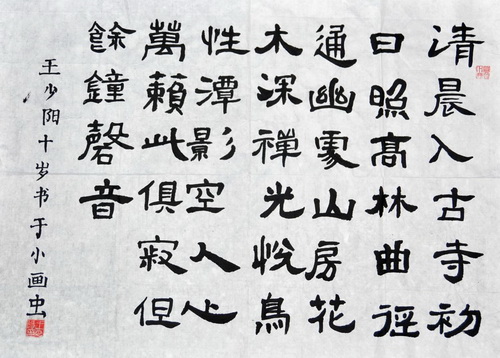 清晨入古寺初
日照高林曲徑
通幽處山房花
木深禪光悅鳥
性潭影空人心
萬籟此俱寂但
餘鐘磬音
王少阳十岁书于小画虫